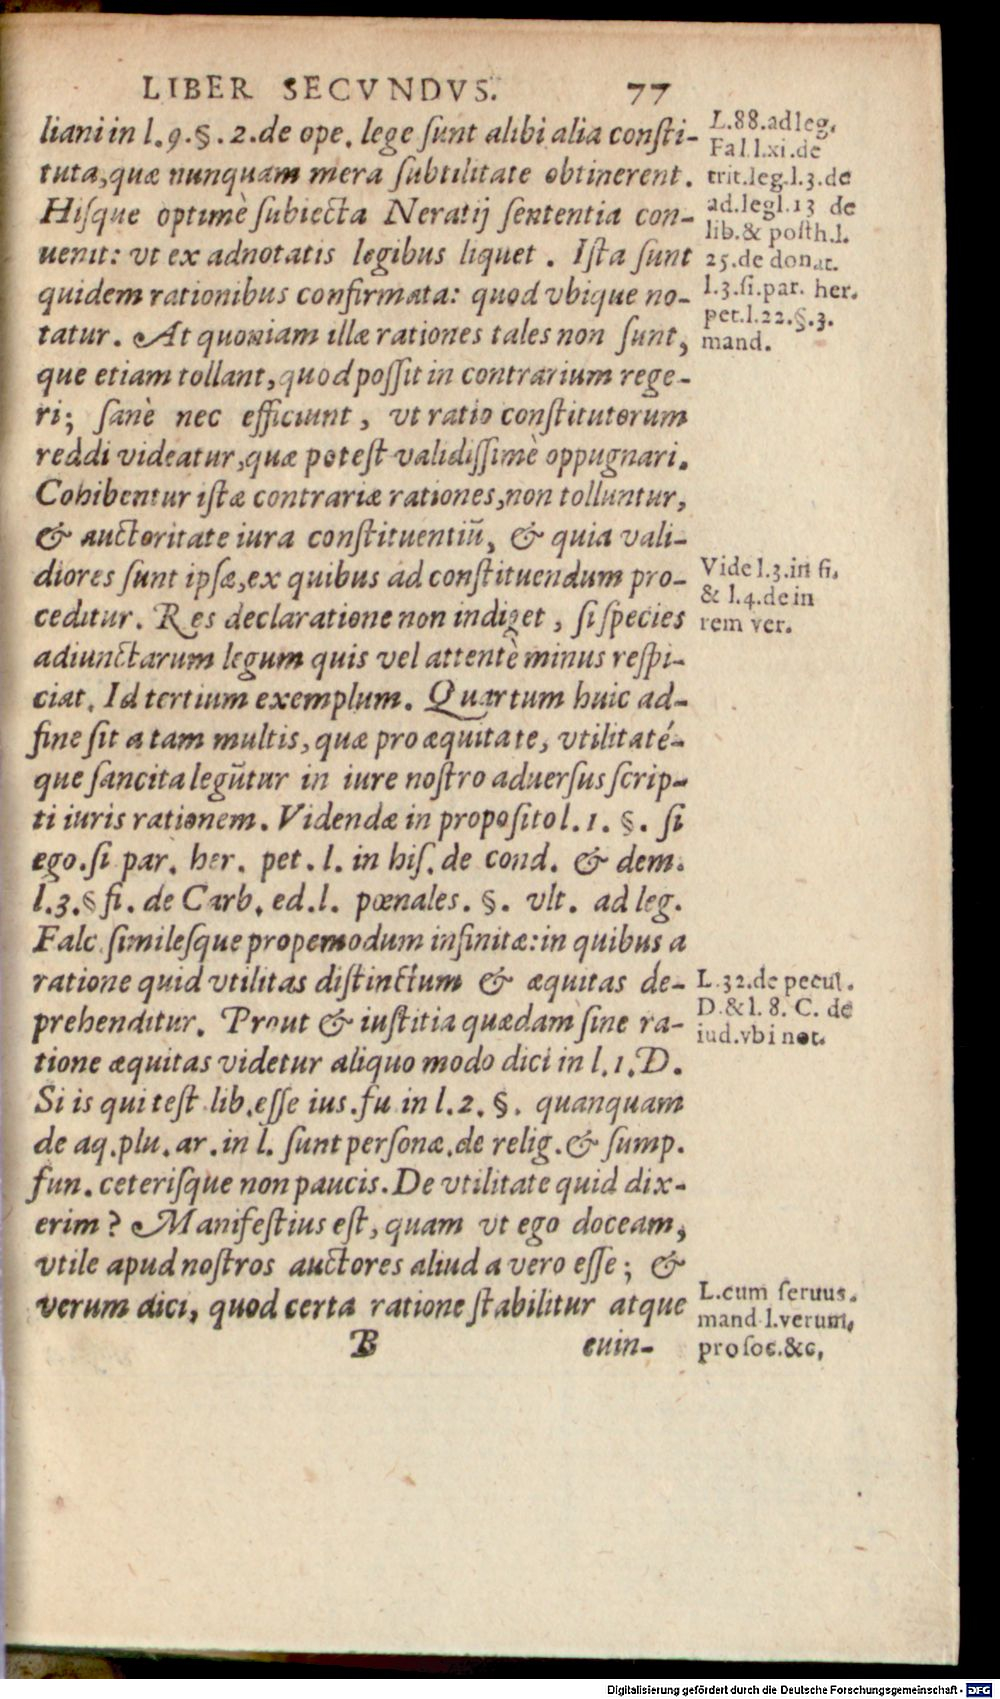 LIBER SECVNDVS. 77
liani in l. 9. §. 2. de ope. lege sunt alibi alia consti-
tuta, quæ nunquam mera subtilitate obtinerent.
Hisque optimè subiecta Neratij sententia con-
uenit: vt ex adnotatis legibus liquet. Ista sunt
quidem rationibus confirmata: quod vbique no-
tatur. At quoniam illæ rationes tales non sunt,
que etiam tollant, quod possit in contrarium rege-
ri; sanè nec efficiunt, vt ratio constitutorum
reddi videatur, quæ potest validissimè oppugnari.
Cohibentur istæ contrariæ rationes, non tolluntur,
& auctoritate iura constituentiũ, & quia vali-
diores sunt ipsæ, ex quibus ad constituendum pro-
ceditur. Res declaratione non indiget, si species
adiunctarum legum quis vel attentè minus respi-
ciat. Id tertium exemplum. Quartum huic ad-
fine sit a tam multis, quæ pro æquitate, vtilitaté-
que sancita legũtur in iure nostro aduersus scrip-
ti iuris rationem. Videndæ in proposito l. 1. §. si
ego. si par. her. pet. l. in his. de cond. & dem.
l. 3. § fi. de Carb. ed. l. pœnales. §. vlt. ad leg.
Falc. similesque propemodum infinitæ: in quibus a
ratione quid vtilitas distinctum & æquitas de-
prehenditur. Prout & iustitia quædam sine ra-
tione æquitas videtur aliquo modo dici in l. 1. D.
Si is qui test. lib. esse ius. fu in l. 2. §. quanquam
de aq. plu. ar. in l. sunt personæ. de relig. & sump.
fun. ceterisque non paucis. De vtilitate quid dix-
erim? Manifestius est, quam vt ego doceam,
vtile apud nostros auctores aliud a vero esse; &
verum dici, quod certa ratione stabilitur atque
B euin-
L. 88. ad leg.
Fal. l. xi. de
trit. leg. l. 3. de
ad. leg l. 13 de
lib. & posth. l.
25. de donat.
l. 3. si. par. her.
pet. l. 22. §. 3.
mand.
Vide l. 3. in fi.
& l. 4. de in
rem ver.
L. 32. de pecul.
D. & l. 8. C. de
iud. vbi not.
L. cum seruus.
mand. l. verum.
pro soc. &c.
Digitalisierung gefördert durch die Deutsche Forschungsgemeinschaft - DFG